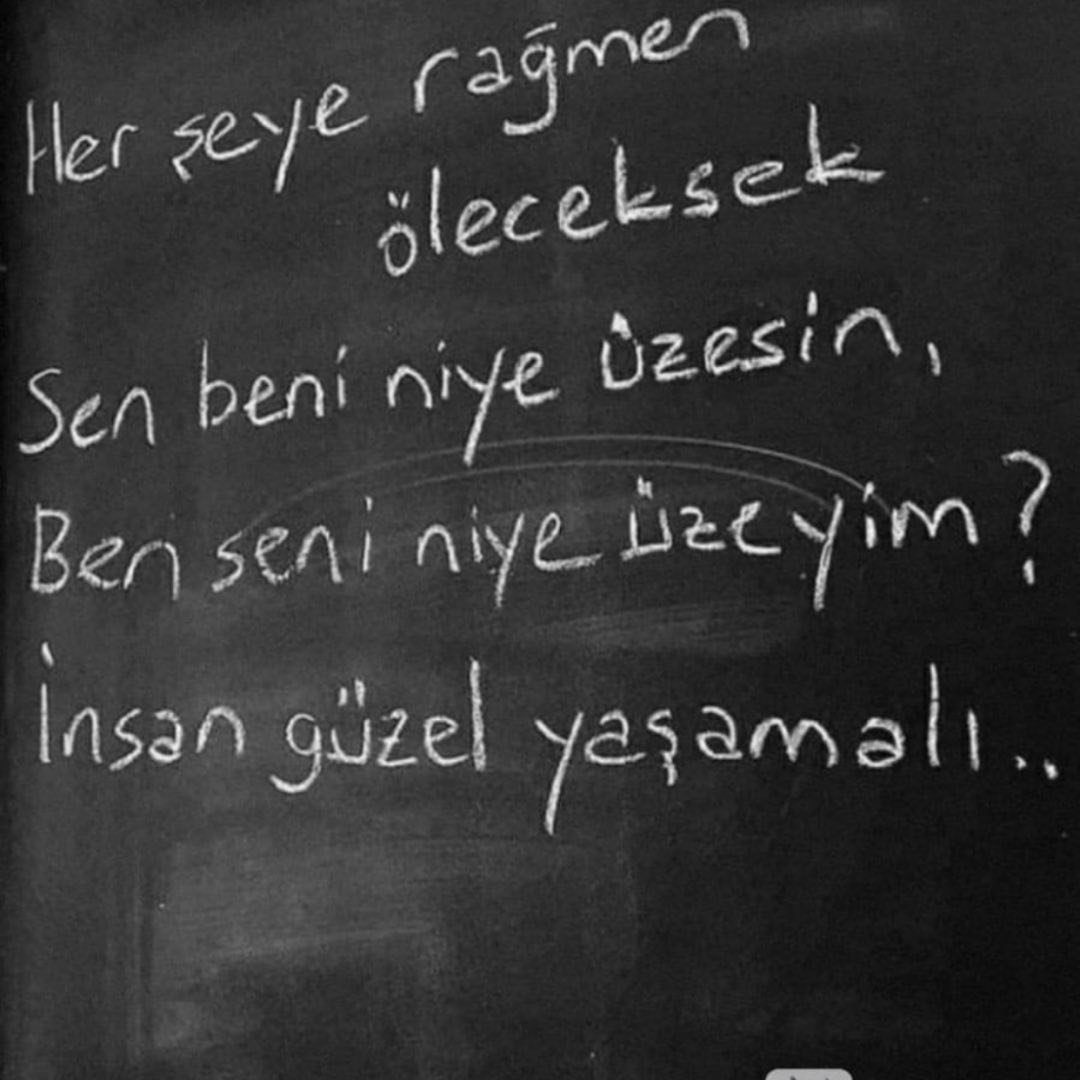 Her şeye rağmen
öleceksek
Sen beni niye üzesin,
Ben seni niye üzeyim?
İnsan güzel yaşamalı..